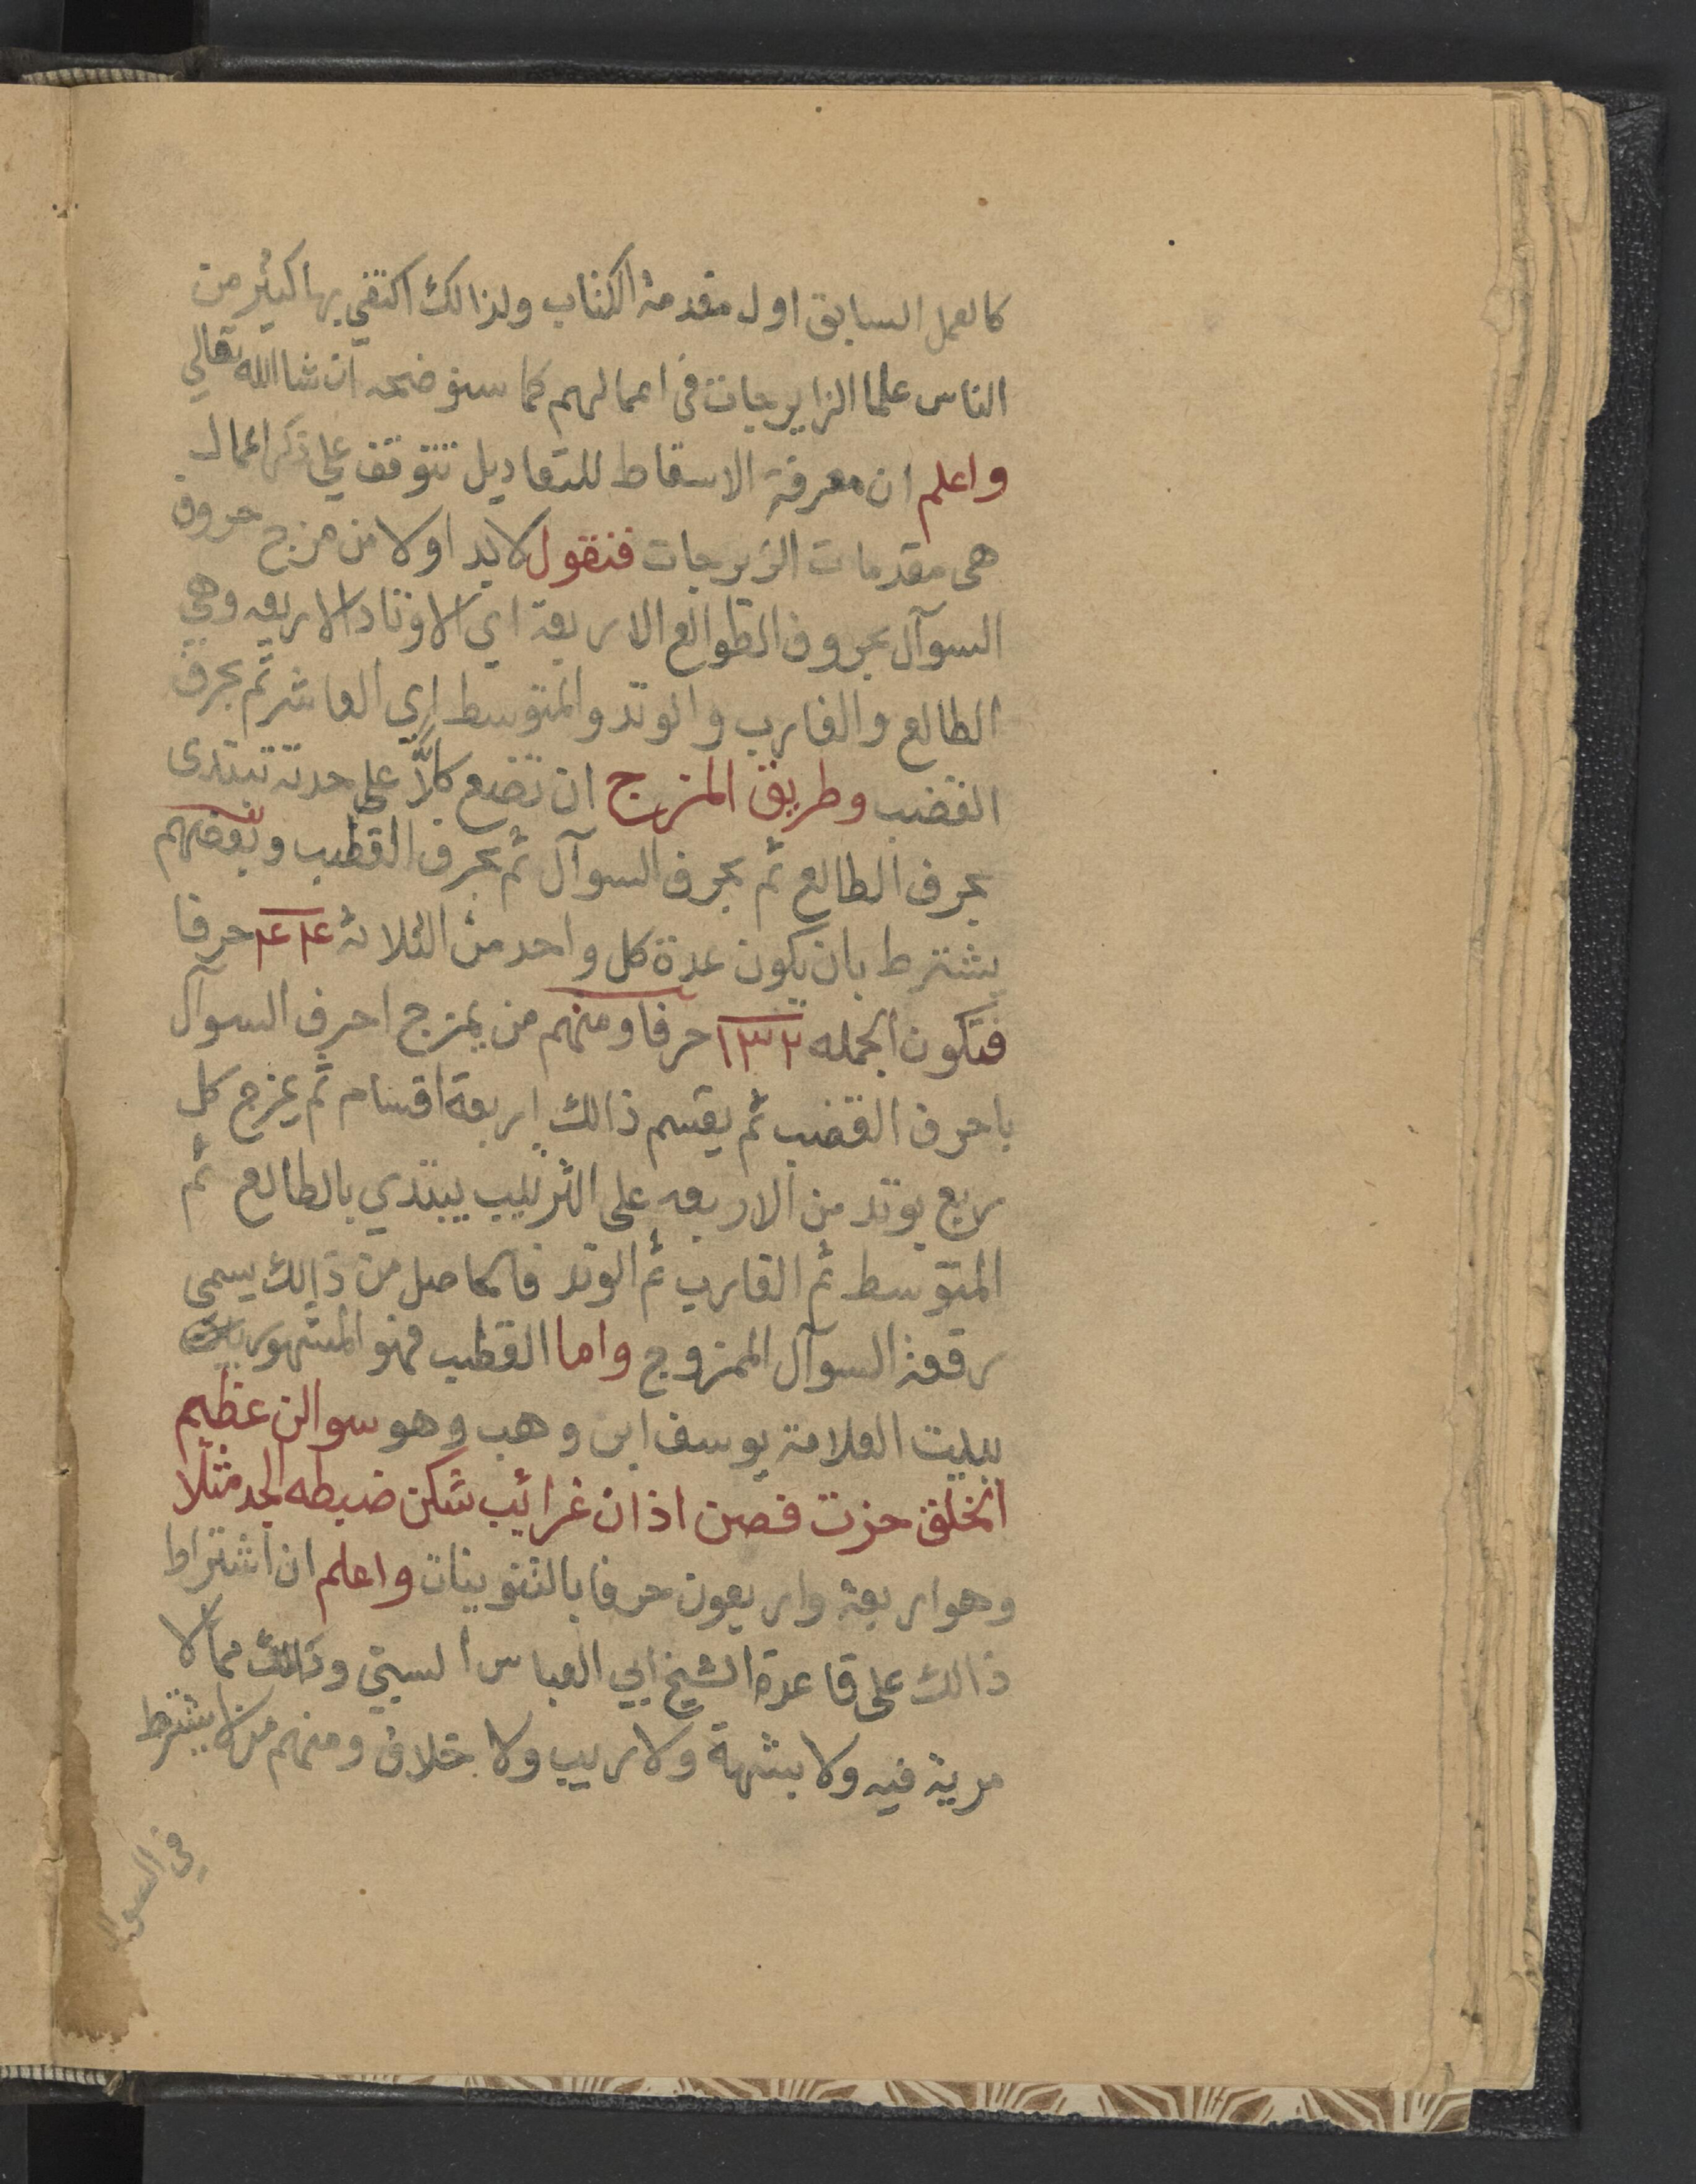 كالعمل السابق اول مقدمة الكتاب ولذالك اكتفي بها كثير من
الناس علما الزايرجات في اعمالهم كما سنوضحه ان شا الله تعالي
واعلم ان معرفة الاسقاط للتعاديل تتوقف علي ذكر اعمال
هى مقدمات الزيرجات فنقول لابد اولا من مزج حروف
السوآل بحروف الطوالع الاربعة اي الاوتاد الاربعه وهي
الطالع والغارب والوتد والمتوسط اي العاشر ثم بحرف
القضب وطريق المزج ان تضع كلاًّ على حدته تبتدى
بحرف الطالع ثم بحرف السوآل ثم بحرف القطب وبعضهم
يشترط بان يكون عدة كل واحد من الثلاثة ٤٤ حرفا
فتكون الجمله ١٣٢ حرفا ومنهم من يمزج احرف السوآل
باحرف القضب ثم يقسم ذالك اربعة اقسام ثم يمزج كل
ربع بوتد من الاربعه على الترتيب يبتدي بالطالع ثم
المتوسط ثم الغارب ثم الوتد فالحاصل من ذالك يسمى
رقعة السوآل الممزوج واما القطب فهو المشهور
ببيت العلامة يوسف ابن وهب وهو سوالن عظيم
الخلق حزت فصن اذان غرائب شكن ضبطه الجد مثلا
وهو اربعة واربعون حرفا بالتنوينات واعلم ان اشتراط
ذالك على قاعدة الشيخ ابي العباس السبتي وذالك مما لا
مرية فيه ولا بشهة ولا ريب ولا خلاف ومنهم من لا يشترط
في السوال